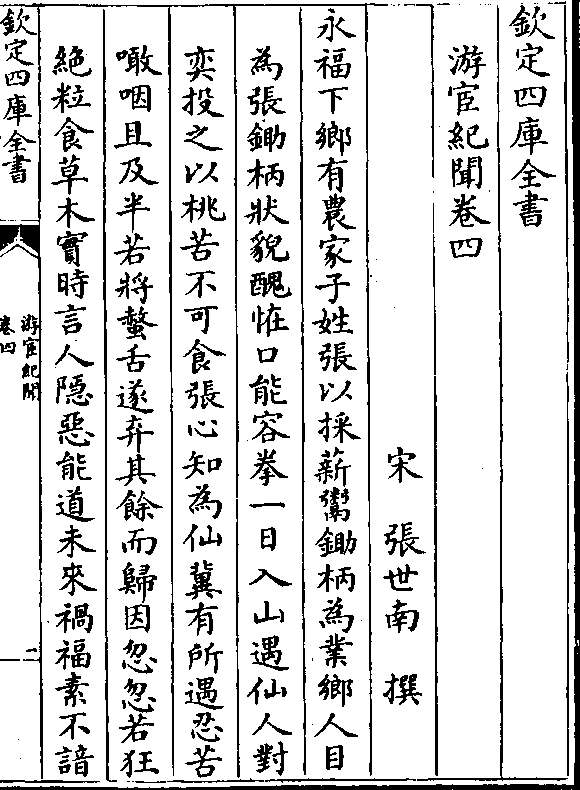 欽定四庫全書
游宦紀聞卷四
宋　張世南　撰
永福下鄉有農家子姓張以採薪鬻鋤柄為業鄉人目
為張鋤柄狀貌醜怪口能容拳一日入山遇仙人對
奕投之以桃苦不可食張心知為仙冀有所遇忍苦
噉咽且及半若將螫舌遂弃其餘而歸因忽忽若狂
絶粒食草木實時言人隠惡能道未來禍福素不諳
欽定四庫全書
游宦紀聞
卷四
一